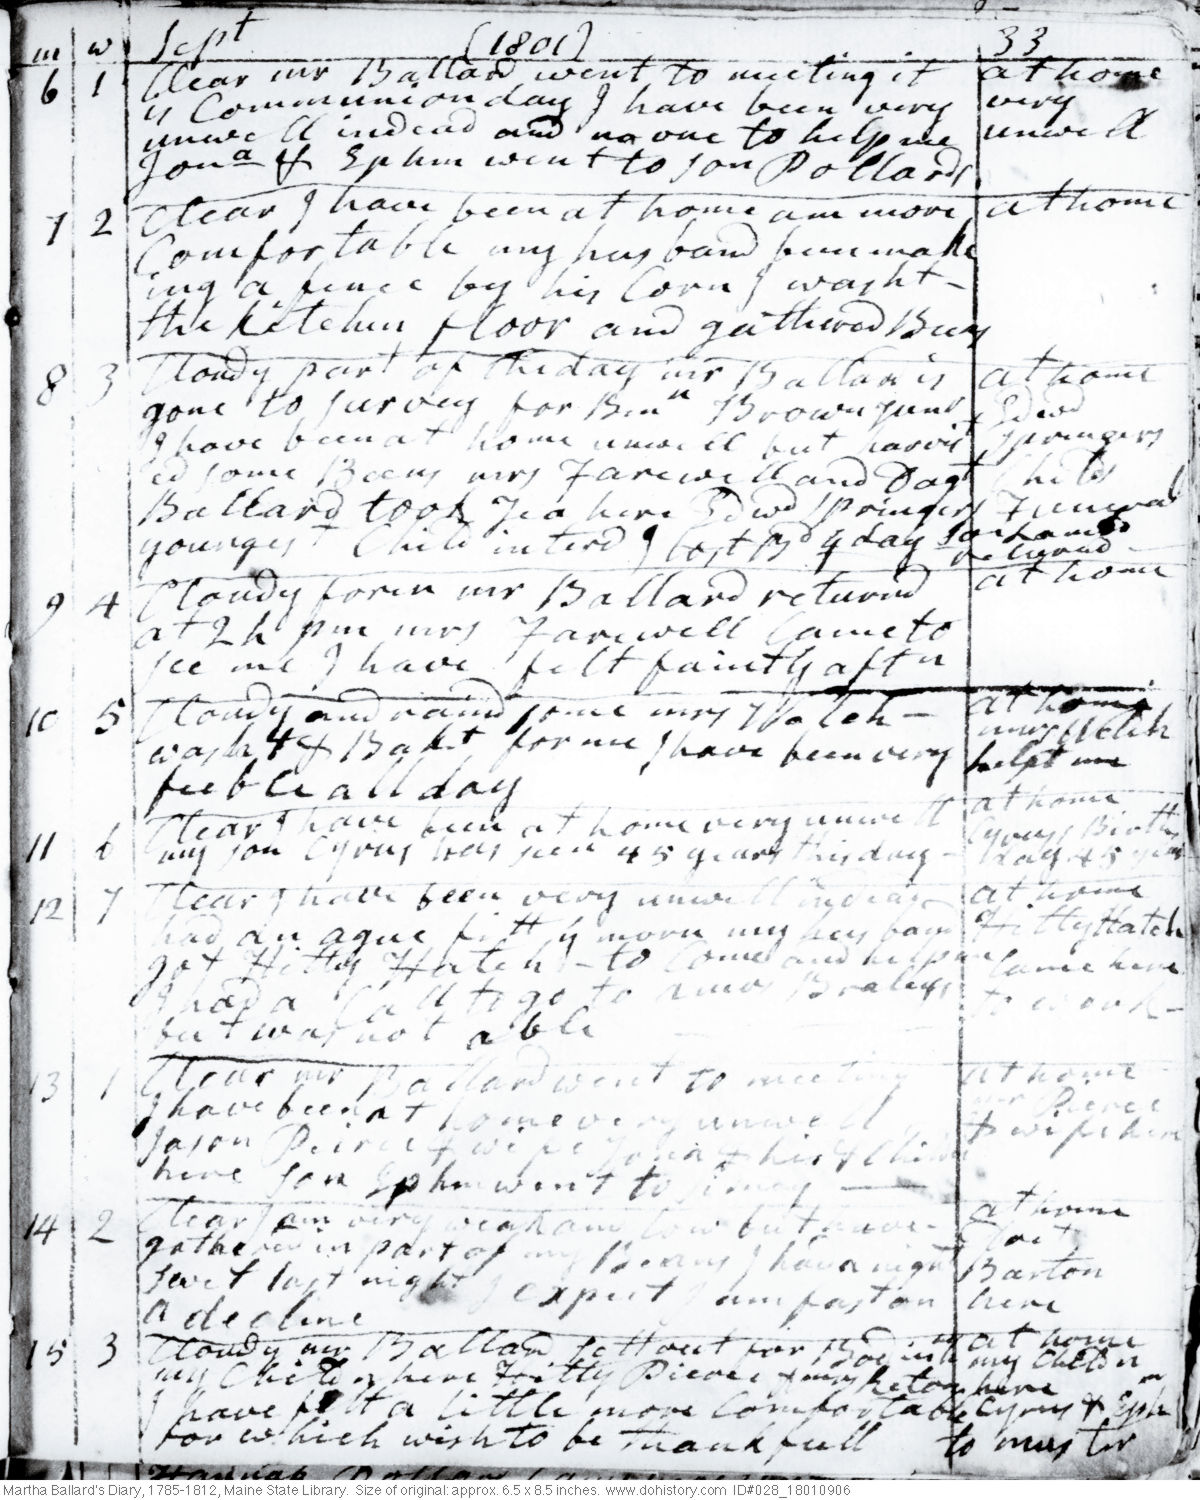 m w Sept (1801) 33
6 1 Clear mr Ballard went to meeting it at home
is Communion day I have been very very
unwell indead and no one to help me unwell
Jona & Ephm went to son Pollards
7 2 Clear I have been at home am more at home
Comfortable my husband been make
ing a fence by his Corn I washt
the kitchin floor and gathered Beens
8 3 Cloudy part of the day mr Ballard is at home
gone to survey for Benn Brown Junr Edwd
I have been at home unwell but harvist Springers
ed some Beens mrs Farewell and Dagt Childs
Ballard took Tea here Edwd Springers Funeral
youngest Child interd
9 4 Cloudy foren mr Ballard returned at home
at 2 h pm mrs Farewell Came to
see me I have felt faintly aftn
10 5 Cloudy and raind some mrs Hatch at home
washt & Bakt for me I have been very mrs Hatch
feeble all day helpt me
11 6 Clear I have been at home very unwell at home
my son Cyrus was seen 45 years this day Cyrus Birth
day 45 years
12 7 Clear I have been very unwell indead at home
had an ague fitt ys morn my husband Hitty Hatch
got Hitty Hatch to Come and help me Came here
I had a Call to go to Amos to work
but was not able
13 1 Clear mr Ballard went to meeting at home
I have been at home very unwell mr Pierce
Jason Peirce & wife Jona & his & Childn & wife here
here son Ephm went to
14 2 Clear I am very weak and low but have at home
gathered in part of my Beens I had a night Doct
swet last night I expect I am fast on Barton
a decline here
15 3 Cloudy mr Ballard sett out for at home
my Childn here Hitty Pierce & my Childn
here
I have felt a little more Comfortable Cyrus & Eph
for which wish to be thankfull to muster
Martha Ballard's Diary, 1785-1812, Maine State Library. Size of original: approx. 6.5 x 8.5 inches. www.dohistory.com ID#028_18010906